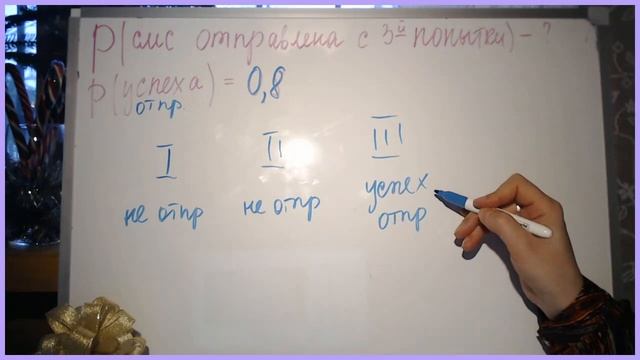 P(смс отправлена с 3й попытки) - ?
P(успеха) = 0,8
отпр.
I II III
не отпр не отпр успех
отпр